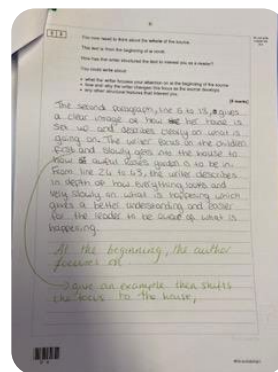 You now need to think about the whole of the source.
This text is from the beginning of a novel.
How has the writer structured the text to interest you as a reader?
You could write about:
• what the writer focuses your attention on at the beginning of the source
• how and why the writer changes this focus as the source develops
• any other structural features that interest you.
[8 marks]
The second paragraph, line 6 to 15, gives
a clear image of how her house is
set up and describes clearly on what is
going on. The writer focus on the children
first and slowly gets into the house to
how awful garden is to be in.
From line 26 to 43, the writer describes
in depth of how everything looks and
very slowly on what is happening which
gives a better understanding and easier
for the reader to be aware of what is
happening.
At the beginning, the author
focuses on
give an example then shifts
the focus to the house,